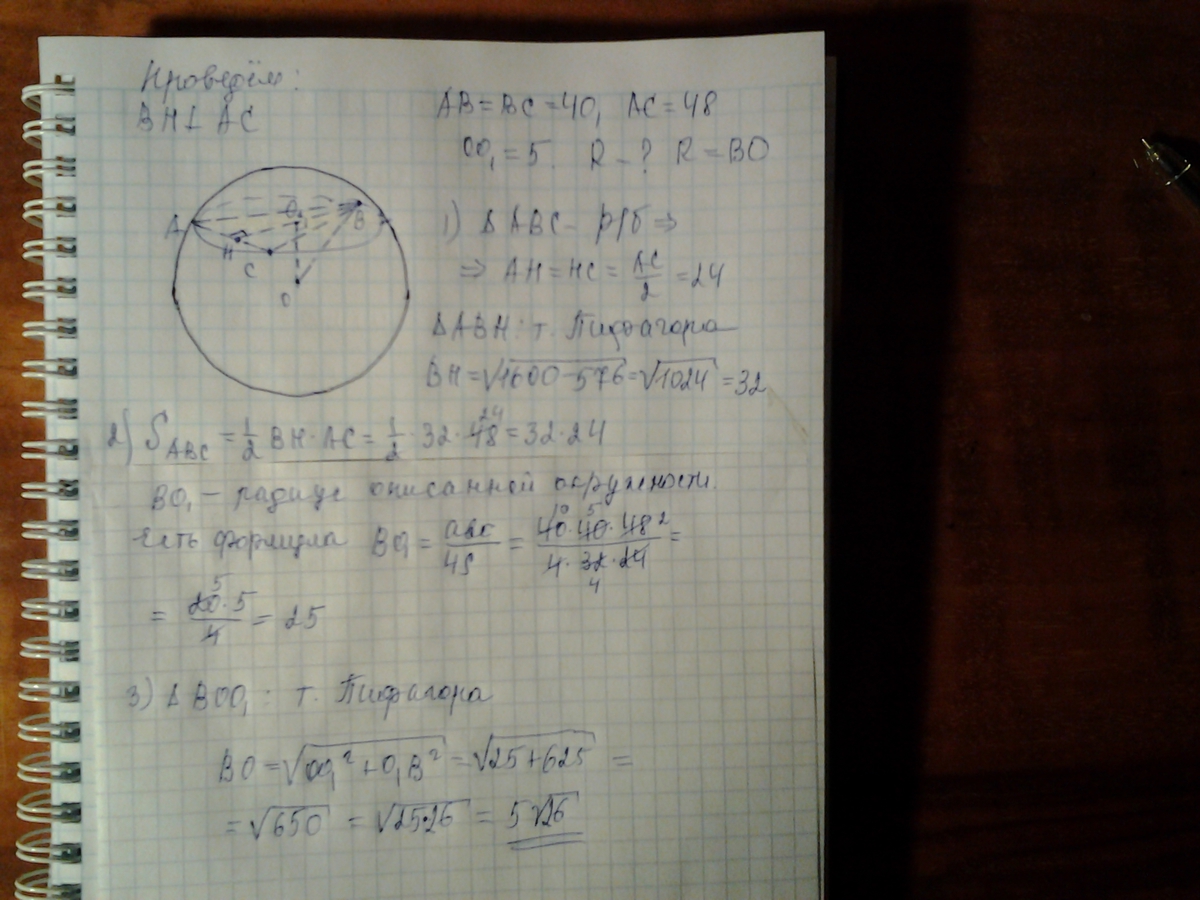 Проведём:
BH ⊥ AC
AB = BC = 40, AC = 48
OO₁ = 5. R - ? R = BO
A O₁ B
H
C
O
1) ΔABC - р/б ⇒
⇒ AH = HC = AC/2 = 24
ΔABH: т. Пифагора
BH = √(1600 - 576) = √1024 = 32
2) S_ABC = 1/2 BH · AC = 1/2 · 32 · 48 24 = 32 · 24
BO₁ - радиус описанной окружности.
Есть формула BO₁ = abc/4S = (40 10 · 40 5 · 48 2)/(4 · 32 4 · 24) =
= (20 5 · 5)/4 = 25
3) ΔBOO₁: т. Пифагора
BO = √(OO₁² + O₁B²) = √(25 + 625) =
= √650 = √(25·26) = 5√26